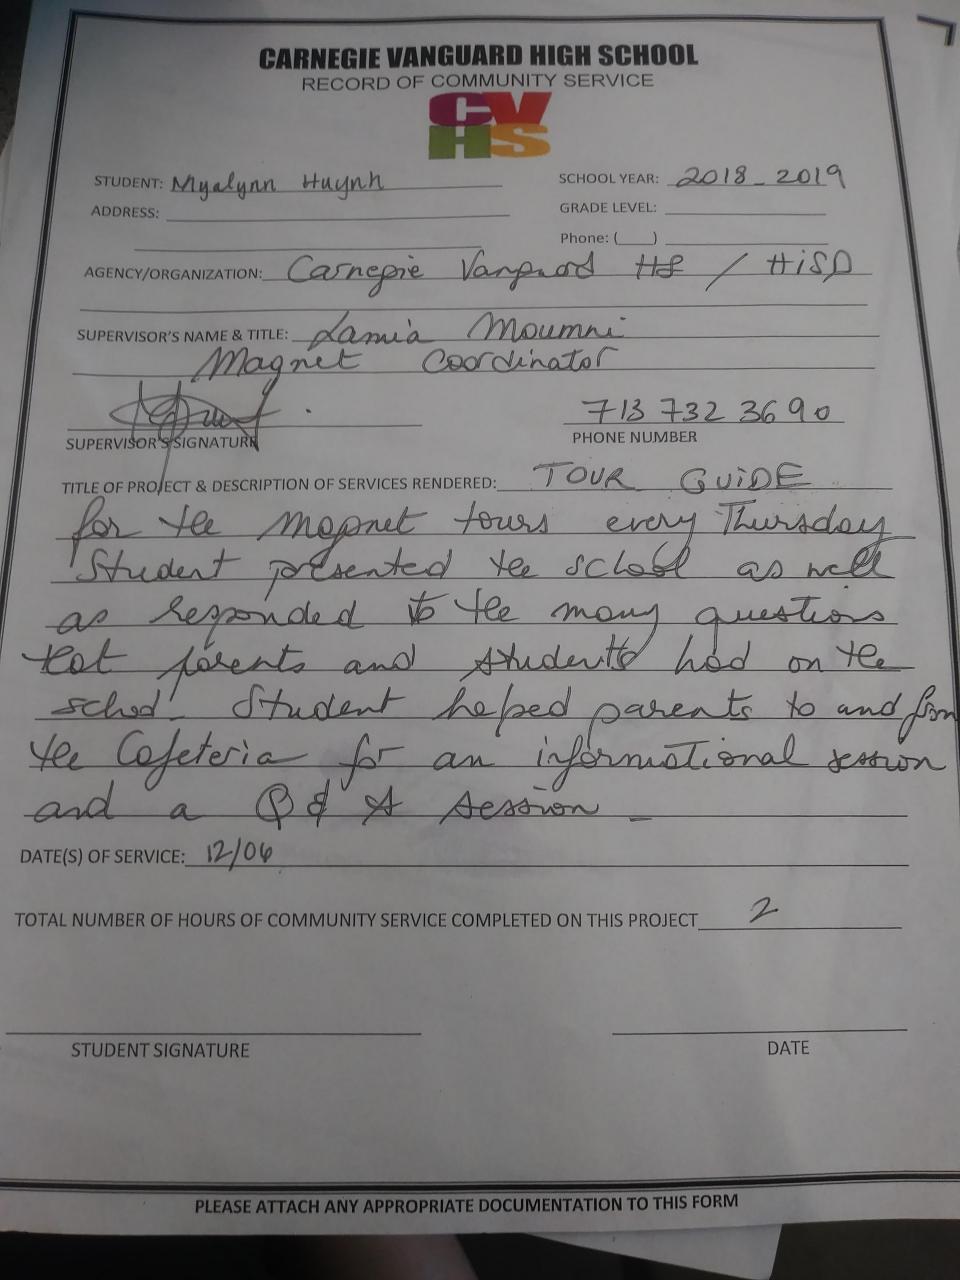 CARNEGIE VANGUARD HIGH SCHOOL
RECORD OF COMMUNITY SERVICE
CV
HS
STUDENT: Myalynn Huynh
SCHOOL YEAR: 2018_2019
ADDRESS:
GRADE LEVEL:
Phone: (    )
AGENCY/ORGANIZATION: Carnegie Vanguard HS / HiSD
SUPERVISOR'S NAME & TITLE: Lamia Moumni
Magnet Coordinator
713 732 3690
SUPERVISOR'S SIGNATURE
PHONE NUMBER
TITLE OF PROJECT & DESCRIPTION OF SERVICES RENDERED: TOUR GUiDE
for the magnet tours every Thursday
Student presented the school as well
as responded to the many questions
that parents and students had on the
school. Student helped parents to and from
the Cafeteria for an informational session
and a Q & A session
DATE(S) OF SERVICE: 12/06
TOTAL NUMBER OF HOURS OF COMMUNITY SERVICE COMPLETED ON THIS PROJECT 2
STUDENT SIGNATURE
DATE
PLEASE ATTACH ANY APPROPRIATE DOCUMENTATION TO THIS FORM